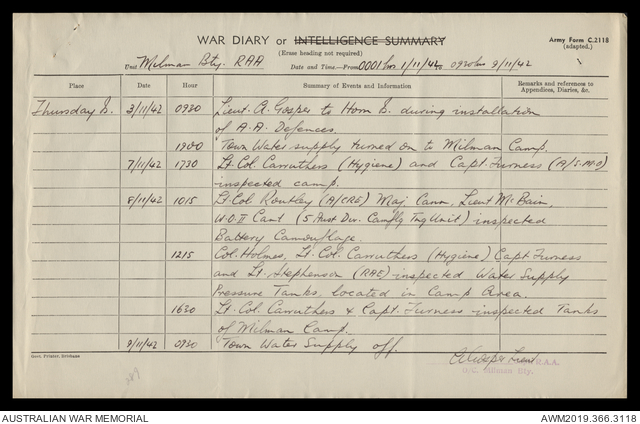 WAR DIARY or INTELLIGENCE SUMMARY
(Erase heading not required)
Army Form C.2118
(adapted.)
Unit Milman Bty. RAA
Date and Time.—From 0001 hrs 1/11/42 to 0930 hrs 9/11/42
Place Date Hour Summary of Events and Information Remarks and references to
Appendices, Diaries, &c.
Thursday Is. 3/11/42 0930 Lieut. A. Gosper to Horn Is. during installation
of A.A. Defences.
1900 Town Water supply turned on to Milman Camp.
7/11/42 1730 Lt. Col. Carruthers (Hygiene) and Capt. Furness (A/S.M.O)
inspected camp.
8/11/42 1015 Lt. Col Routley (A/CRE) Maj. Cann, Lieut McBain,
W.O.II Cant (5 Aust Div. Camflg Tng Unit) inspected
Battery Camouflage.
1215 Col. Holmes, Lt. Col. Carruthers (Hygiene) Capt Furness
and Lt. Stephenson (RAE) inspected Water Supply
Pressure Tanks, located in Camp Area.
1630 Lt. Col. Carruthers & Capt. Furness inspected Tanks
of Milman Camp.
9/11/42 0930 Town Water Supply off.
Lieut R.A.A.
O/C. Milman Bty.
Govt. Printer, Brisbane
AUSTRALIAN WAR MEMORIAL
AWM2019.366.3118